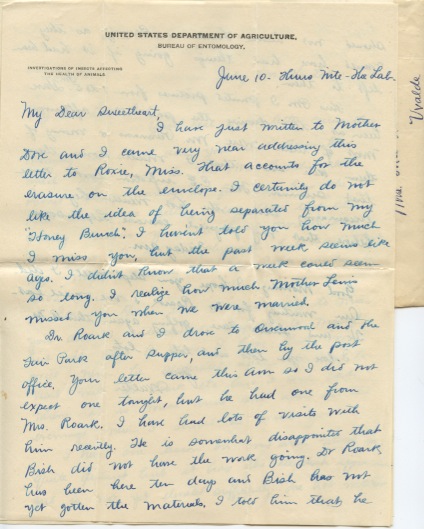 UNITED STATES DEPARTMENT OF AGRICULTURE,
BUREAU OF ENTOMOLOGY.
INVESTIGATIONS OF INSECTS AFFECTING
THE HEALTH OF ANIMALS
June 10 - Thurs Nite - the Lab.
My Dear Sweetheart,
I have just written to Mother
Dove and I came very near addressing this
letter to Roxie, Miss. That accounts for the
erasure on the envelope. I certainly do not
like the idea of being separated from my
"Honey Bunch". I haven't told you how much
I miss you, but the past week seems like
ages. I didn't know that a week could seem
so long. I realize how much Mother
missed you when we were married.
Dr. Roark and I drove to and the
Fair Park after supper, and then by the post
office. Your letter came this am so I did not
expect one tonight, but he had one from
Mrs. Roark. I have had lots of visits with
him recently. He is somewhat disappointed that
Bish did not have the work going. Dr Roark
has been here ten days and Bish has not
yet gotten the materials. I told him that he
Mrs.
Uvalde